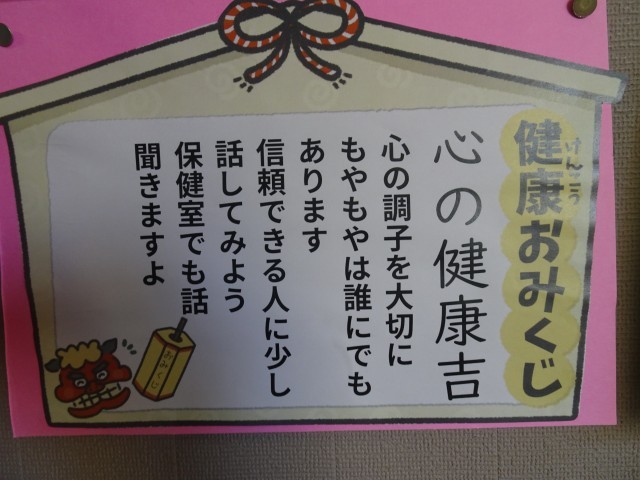 健康おみくじ
けんこう
心の健康吉
心の調子を大切に
もやもやは誰にでも
あります
信頼できる人に少し
話してみよう
保健室でも話
聞きますよ
おみくじ